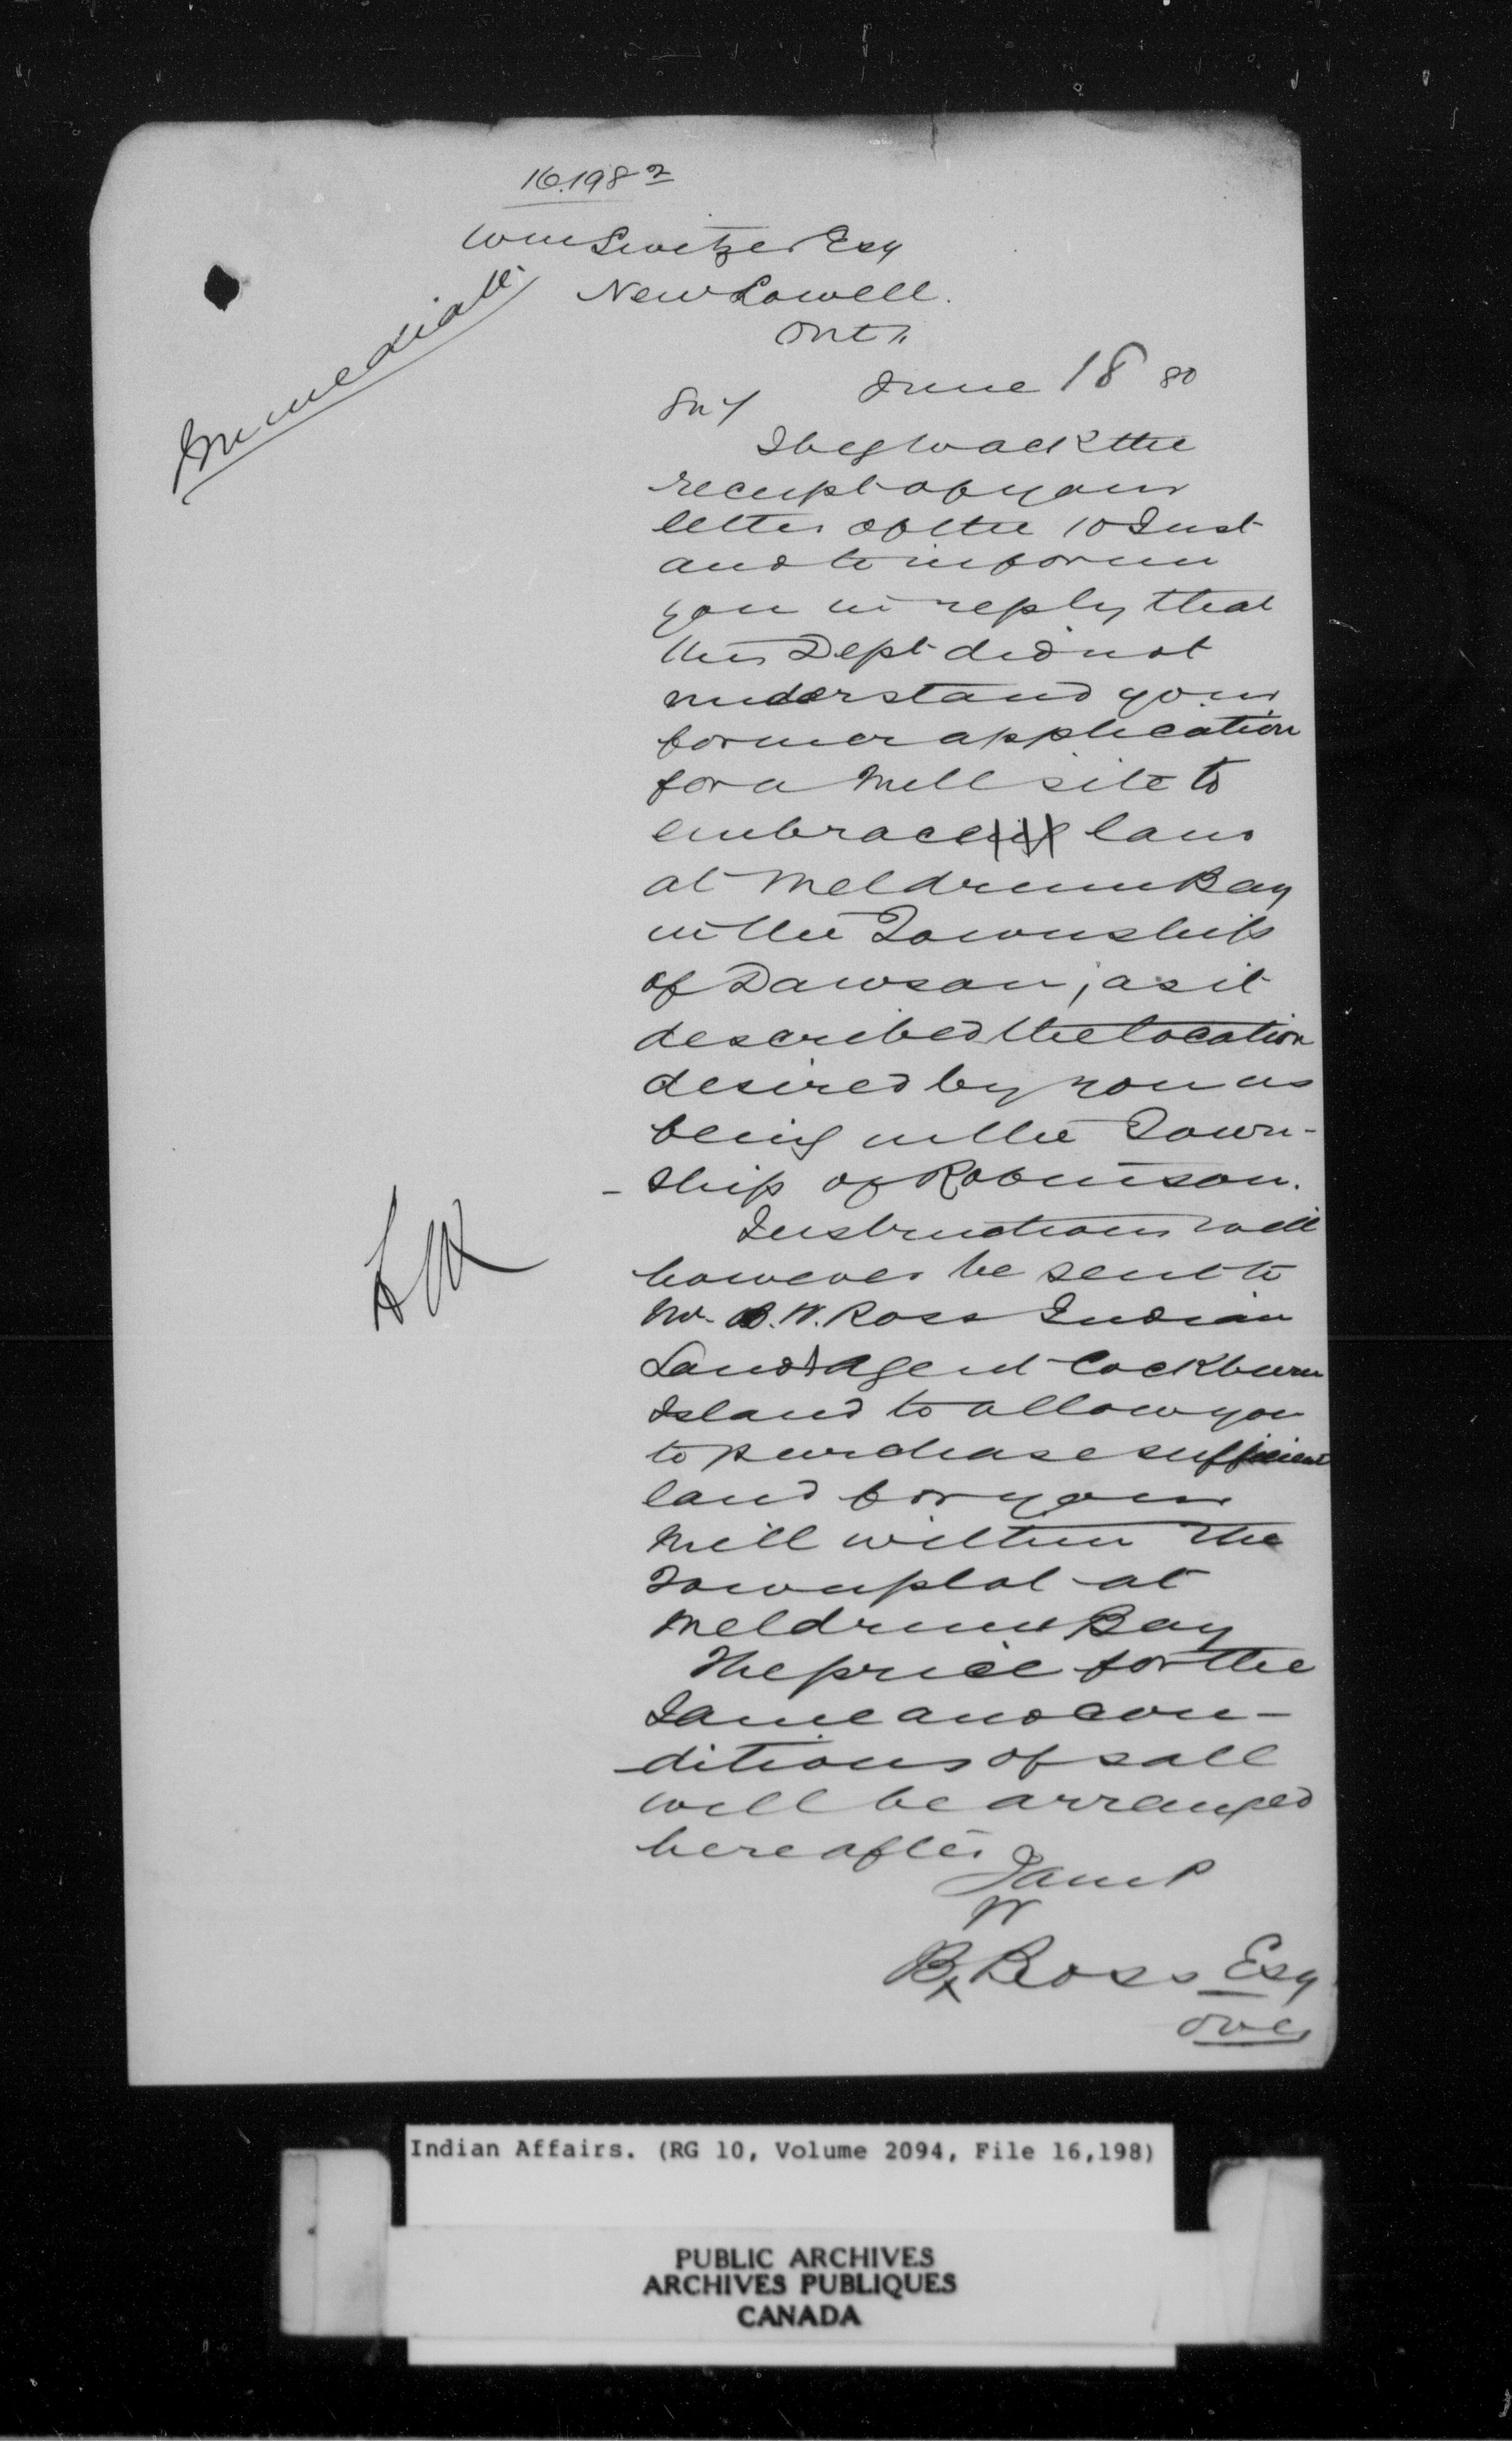 16.198 2
Wm Switzer Esq
New Lowell.
Ont"
Immediate
June 18 80
Sir
I beg to ack the
receipt of your
letter of the 10 Inst
and to inform
you in reply that
this Dept did not
understand your
former application
for a Mill site to
embrace land
at Meldrum Bay
in the Township
of Dawson, as it
described the location
desired by you as
being in the Town-
-ship of Robinson.
Instructions will
however be sent to
Mr. B.W. Ross Indian
Land Agent Cockburn
Island to allow you
to purchase sufficient
land for your
Mill within the
Townplot at
Meldrum Bay
The price for the
Same and con-
-ditions of sale
will be arranged
hereafter
W
B Ross Esq
over
Indian Affairs. (RG 10, Volume 2094, File 16,198)
PUBLIC ARCHIVES
ARCHIVES PUBLIQUES
CANADA